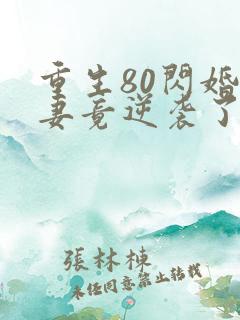 重生80閃婚
妻竟逆袭了
張林棟
未经同意禁止转载